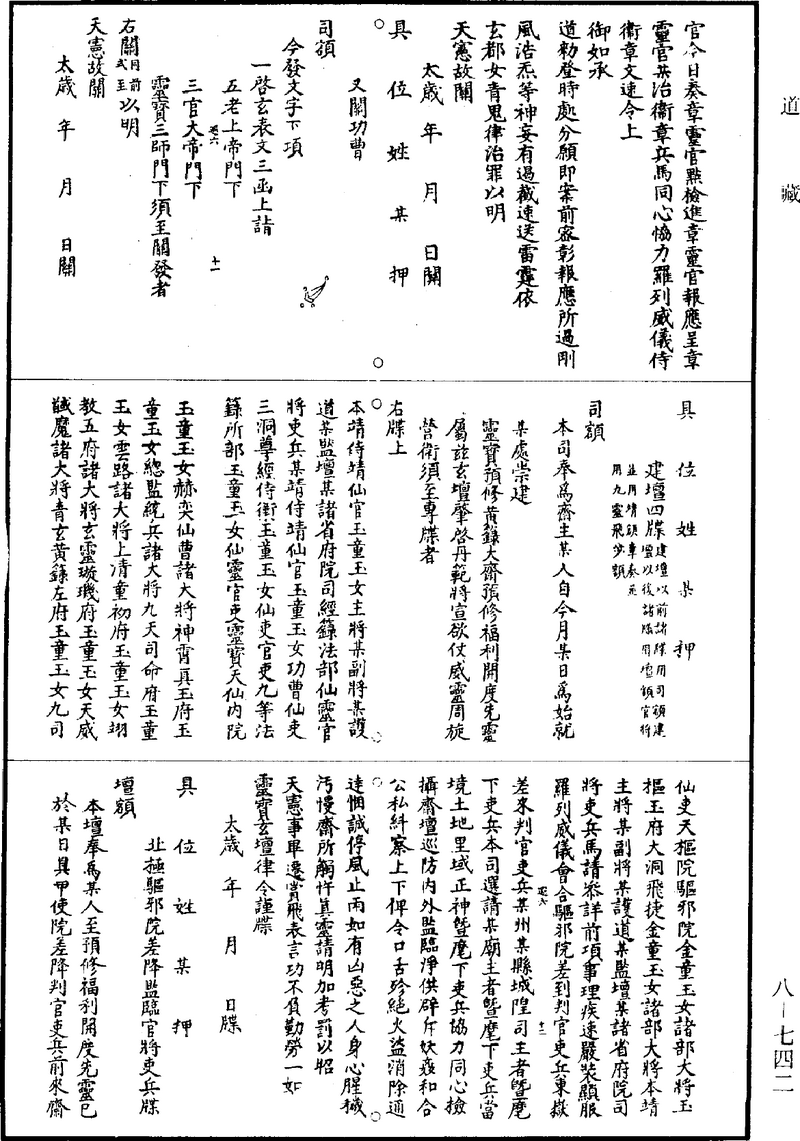 道藏
官今日奏章靈官點檢進章靈官報應呈章
靈官某治衞章兵馬同心恊力羅列威儀侍
衞章文速令上
御如承
道勑登時處分願即案前密彰報應所過剛
風浩炁等神妄有過截速送雷霆依
玄都女青鬼律治罪以明
天憲故關
太歲年月日關
具位姓某押
又關功曹
司額
今發文字下項
一啓玄表文三函上請
五老上帝門下
三官大帝門下
靈寶三師門下須至關發者
右關式至以明
天憲故關
太歲年月日關
具位姓某押
建壇四牒建壇以前諸牒用司額建
壇以後諸牒用壇額官將
並用靖額章奏
用九靈飛步額
司額
本司奉爲齋主某人自今月某日爲始就
某處崇建
靈寶預修黃籙大齋預修福利開度先靈
屬兹玄壇肇啓丹範將宣欲仗威靈周旋
營衛須至專牒者
右牒上
本靖侍靖仙官玉童玉女主將某副將某護
道某監壇某諸省府院司經籙法部仙靈官
將吏兵某靖侍靖仙官玉童玉女功曹仙吏
三洞尊經侍衛玉童玉女仙吏官吏九等法
籙所部玉童玉女仙靈官吏靈寶天仙内院
玉童玉女赫奕仙曹諸大將神霄真王府玉
童玉女總監統兵諸大將九天司命府玉童
玉女雲路諸大將上清童初府玉童玉女翊
教五府諸大將玄靈璇璣府玉童玉女天威
馘魔諸大將青玄黃籙左府玉童玉女九司
仙吏天樞院驅邪院金童玉女諸部大將玉
樞玉府大洞飛捷金童玉女諸部大將本靖
主將某副將某護道某監壇某諸省府院司
將吏兵馬請叅詳前項事理疾速嚴裝顯服
羅列威儀會合驅邪院差到判官吏兵東嶽
差來判官吏兵某州某縣城隍司主者暨麾
下吏兵本司選請某廟主者暨麾下吏兵當
境土地里域正神暨麾下吏兵恊力同心撿
攝齋壇巡防内外監臨淨供辟斥妖氛和合
公私糾察上下俾令口舌殄絕火盜消除通
達悃誠停風止雨如有凶惡之人身心腥穢
汚慢齋所觸忤真靈請明加考罰以昭
天憲事畢遷賞飛表言功不負勤勞一如
靈寶玄壇律令謹牒
太歲年月日牒
具位姓某押
北極驅邪院差降監臨官將吏兵牒
壇額
本壇奉爲某人至預修福利開度先靈已
於某日具申使院差降判官吏兵前來齋
八-七四二